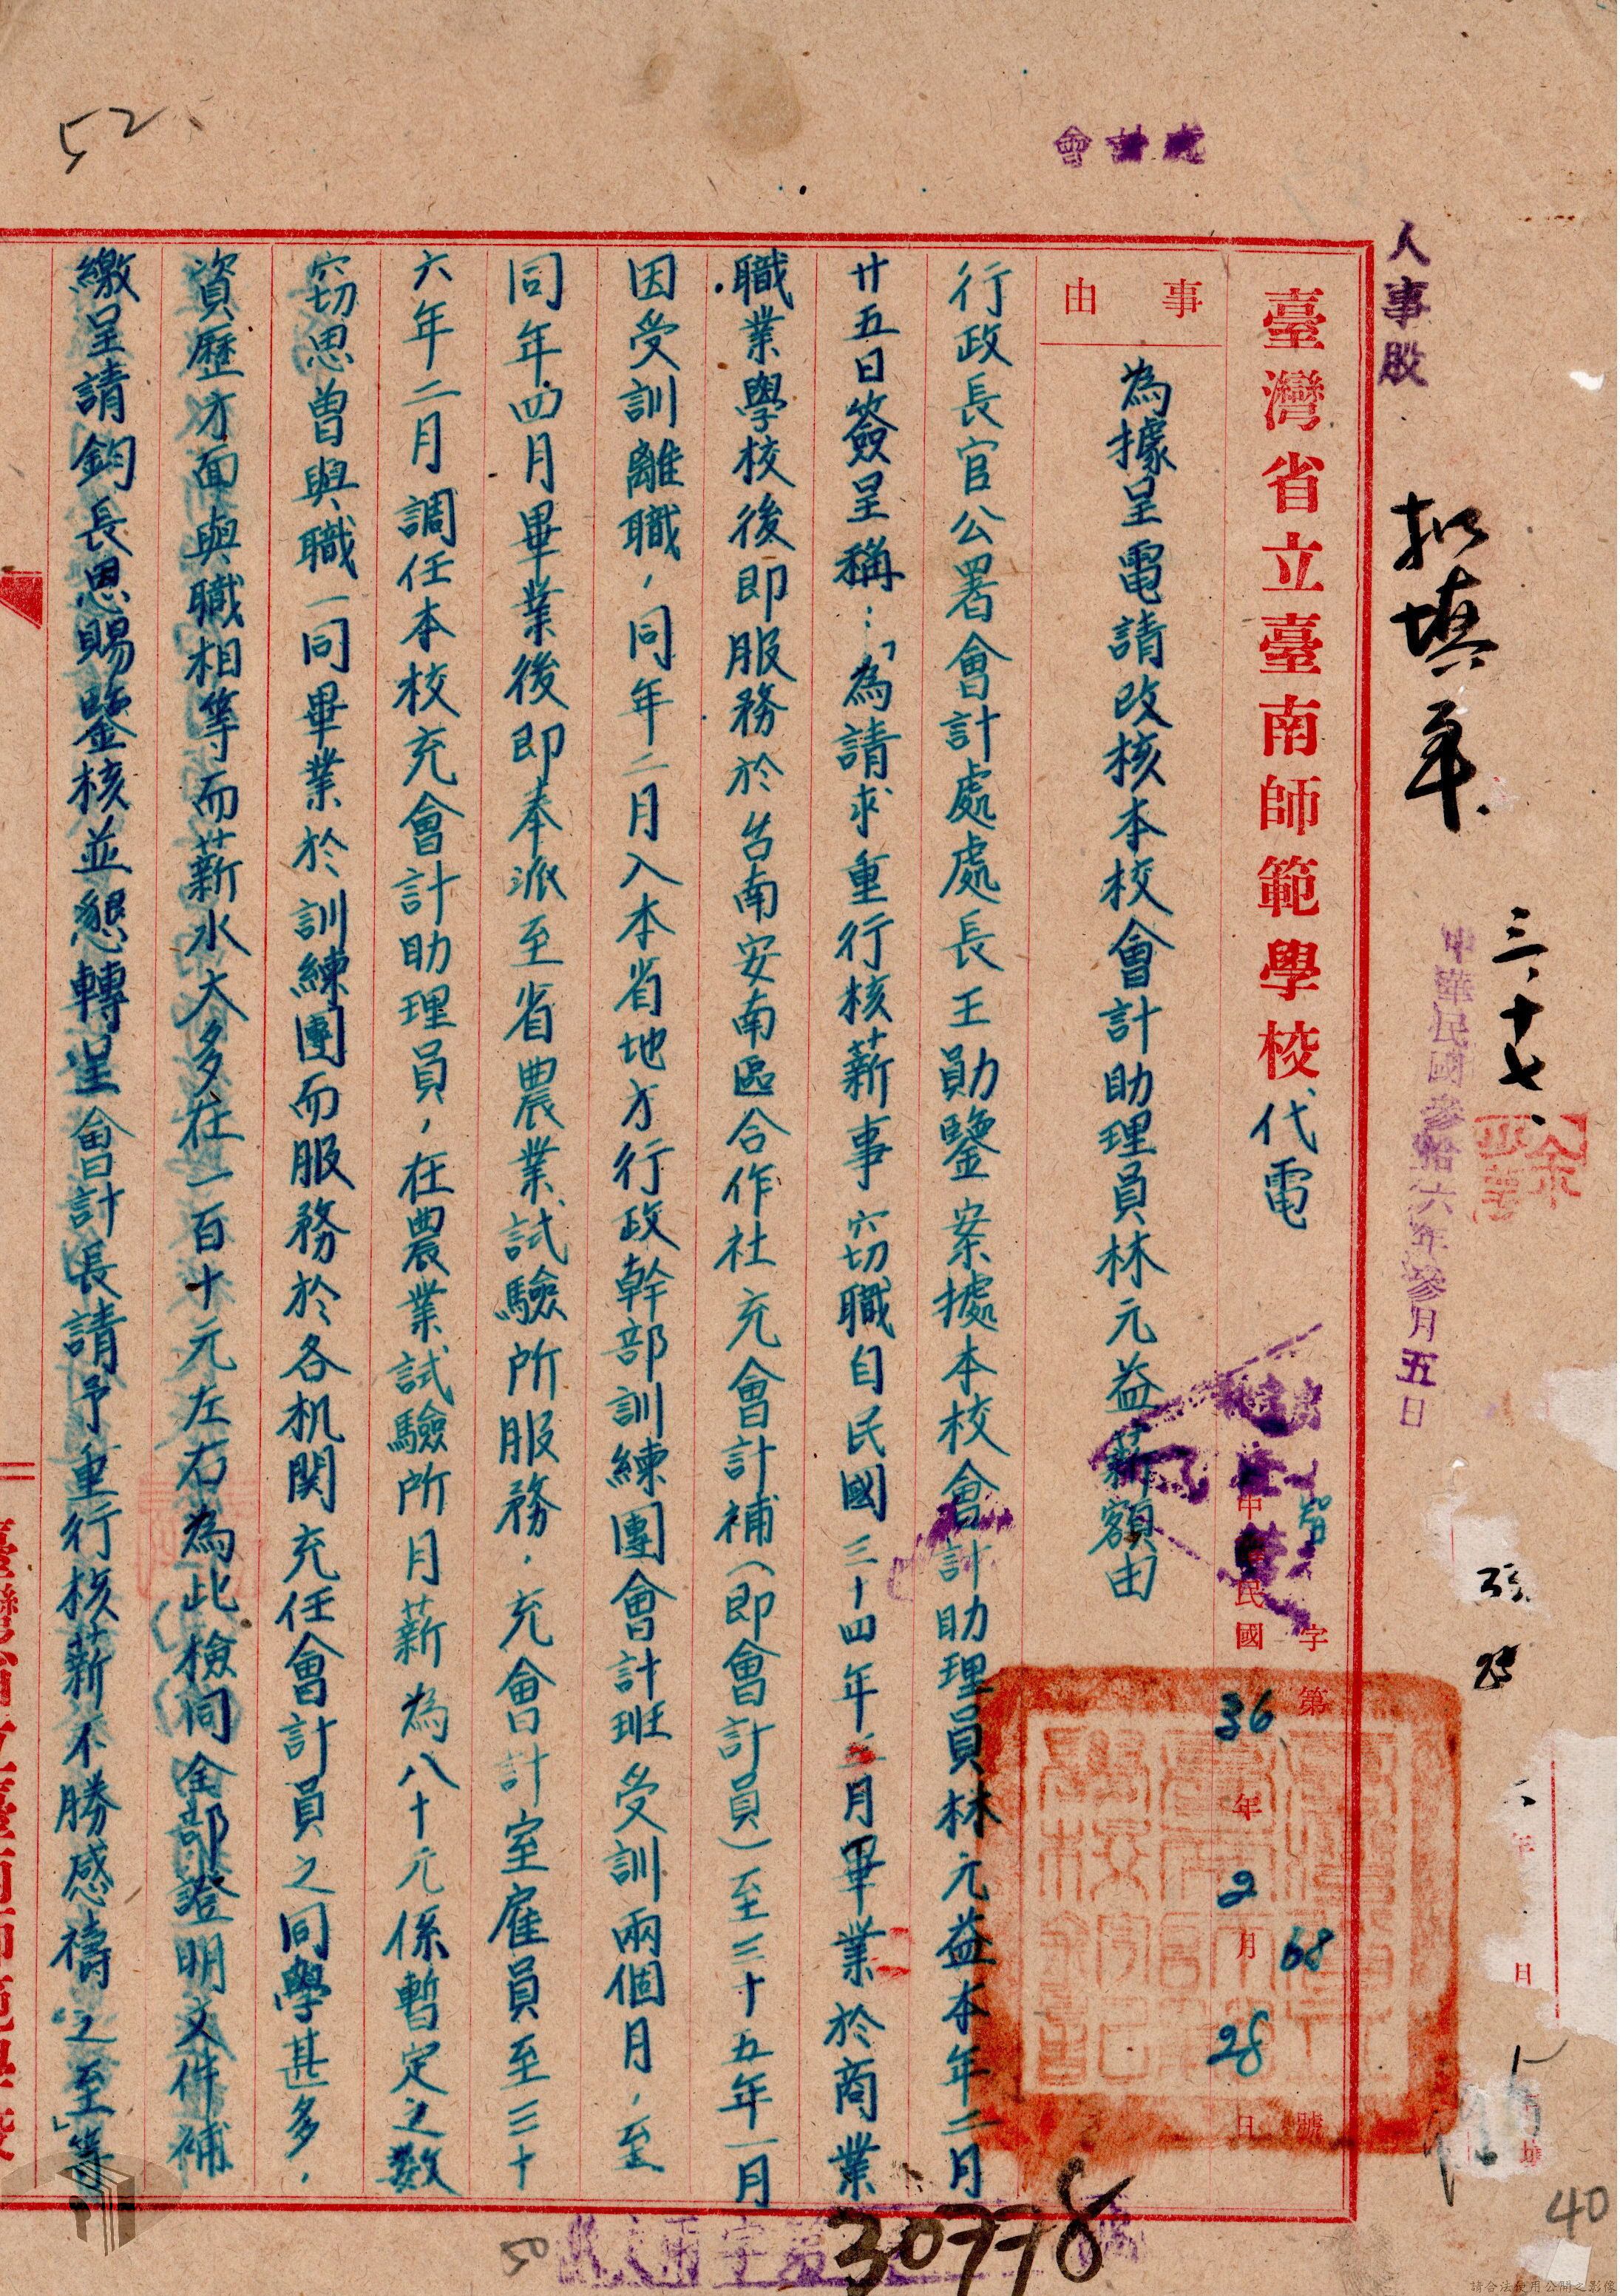 52
會計處
人事股
扣填年
三、十七、
中華民國參拾六年參月五日
臺灣省立臺南師範學校代電
字第68號
中華民國36年2月28日
事由
為據呈電請改核本校會計助理員林元益薪額由
行政長官公署會計處處長王勛鑒案據本校會計助理員林元益本年二月
廿五日簽呈稱：「為請求重行核薪事窃職自民國三十四年三月畢業於商業
職業學校後即服務於台南安南區合作社充會計補（即會計員）至三十五年一月
因受訓離職，同年二月入本省地方行政幹部訓練團會計班受訓兩個月，至
同年四月畢業後即奉派至省農業試驗所服務，充會計室雇員至三十
六年二月調任本校充會計助理員，在農業試驗所月薪為八十元係暫定之数
窃思曾與職一同畢業於訓練團而服務於各机関充任會計員之同學甚多，
資歷才面與職相等而薪水大多在一百十元左右為此檢同全部證明文件補
繳呈請鈞長恩賜鑒核並懇轉呈會計長請予重行核薪不勝感禱之至」等
臺灣省立臺南師範學校
50
30778
40
請合法使用公開之影像